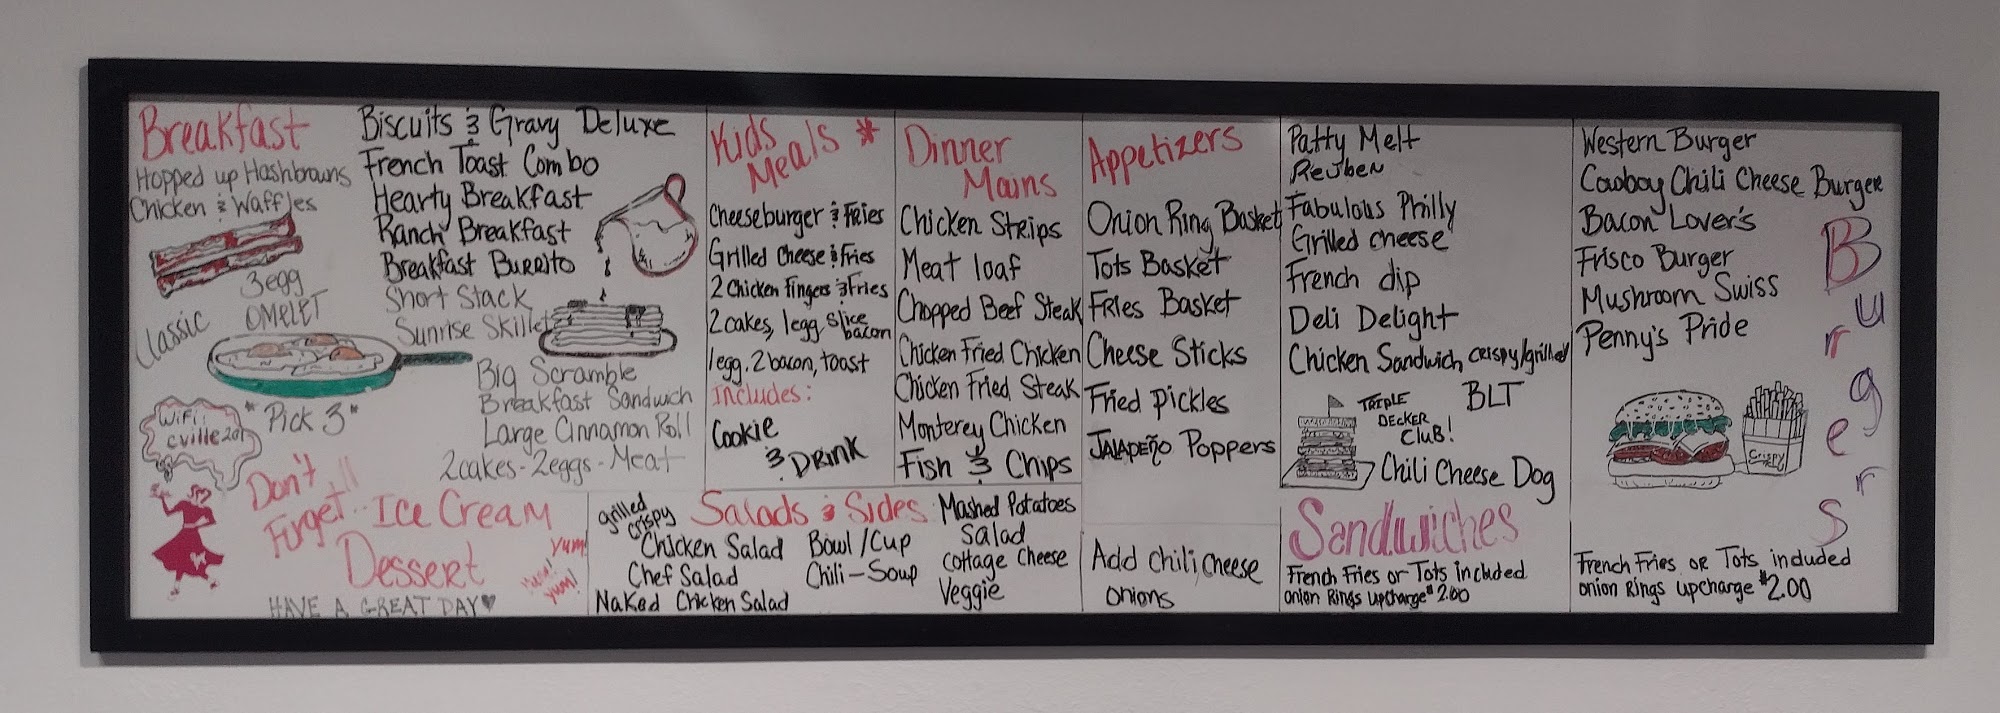 Breakfast
Hopped up Hashbrowns
Chicken & Waffles
3 egg
OMELET
Classic
"Pick 3"
WiFi:
Biscuits & Gravy Deluxe
French Toast Combo
Hearty Breakfast
Ranch Breakfast
Breakfast Burrito
Short Stack
Sunrise Skillet
Big Scramble
Breakfast Sandwich
Large Cinnamon Roll
2cakes - 2eggs - Meat
Don't
Furget.. Ice Cream
Dessert
Yum!
Yum!
HAVE A GREAT DAY♥
Kids
Meals *
Cheeseburger & Fries
Grilled Cheese & Fries
2 Chicken Fingers & Fries
2 cakes, 1egg slice
bacon
1egg, 2 bacon, toast
Includes:
Cookie
& DRINK
Dinner
Mains
Chicken Strips
Meat loaf
Chopped Beef Steak
Chicken Fried Chicken
Chicken Fried Steak
Monterey Chicken
Fish & Chips
Salads & Sides
grilled
crispy
Chicken Salad
Chef Salad
Naked Chicken Salad
Bowl/Cup
Chili - Soup
Mashed Potatoes
Salad
Cottage Cheese
Veggie
Appetizers
Onion Ring Basket
Tots Basket
Fries Basket
Cheese Sticks
Fried Pickles
JALAPEÑO Poppers
Add chili, cheese
onions
Patty Melt
Reuben
Fabulous Philly
Grilled cheese
French dip
Deli Delight
Chicken Sandwich crispy/grilled
BLT
TRIPLE
DECKER
CLUB!
Chili Cheese Dog
Sandwiches
French Fries or Tots included
onion Rings upcharge $2.00
Western Burger
Cowboy Chili Cheese Burger
Bacon Lover's
Frisco Burger
Mushroom Swiss
Penny's Pride
Burgers
Crispy
French Fries or Tots included
onion Rings upcharge $2.00